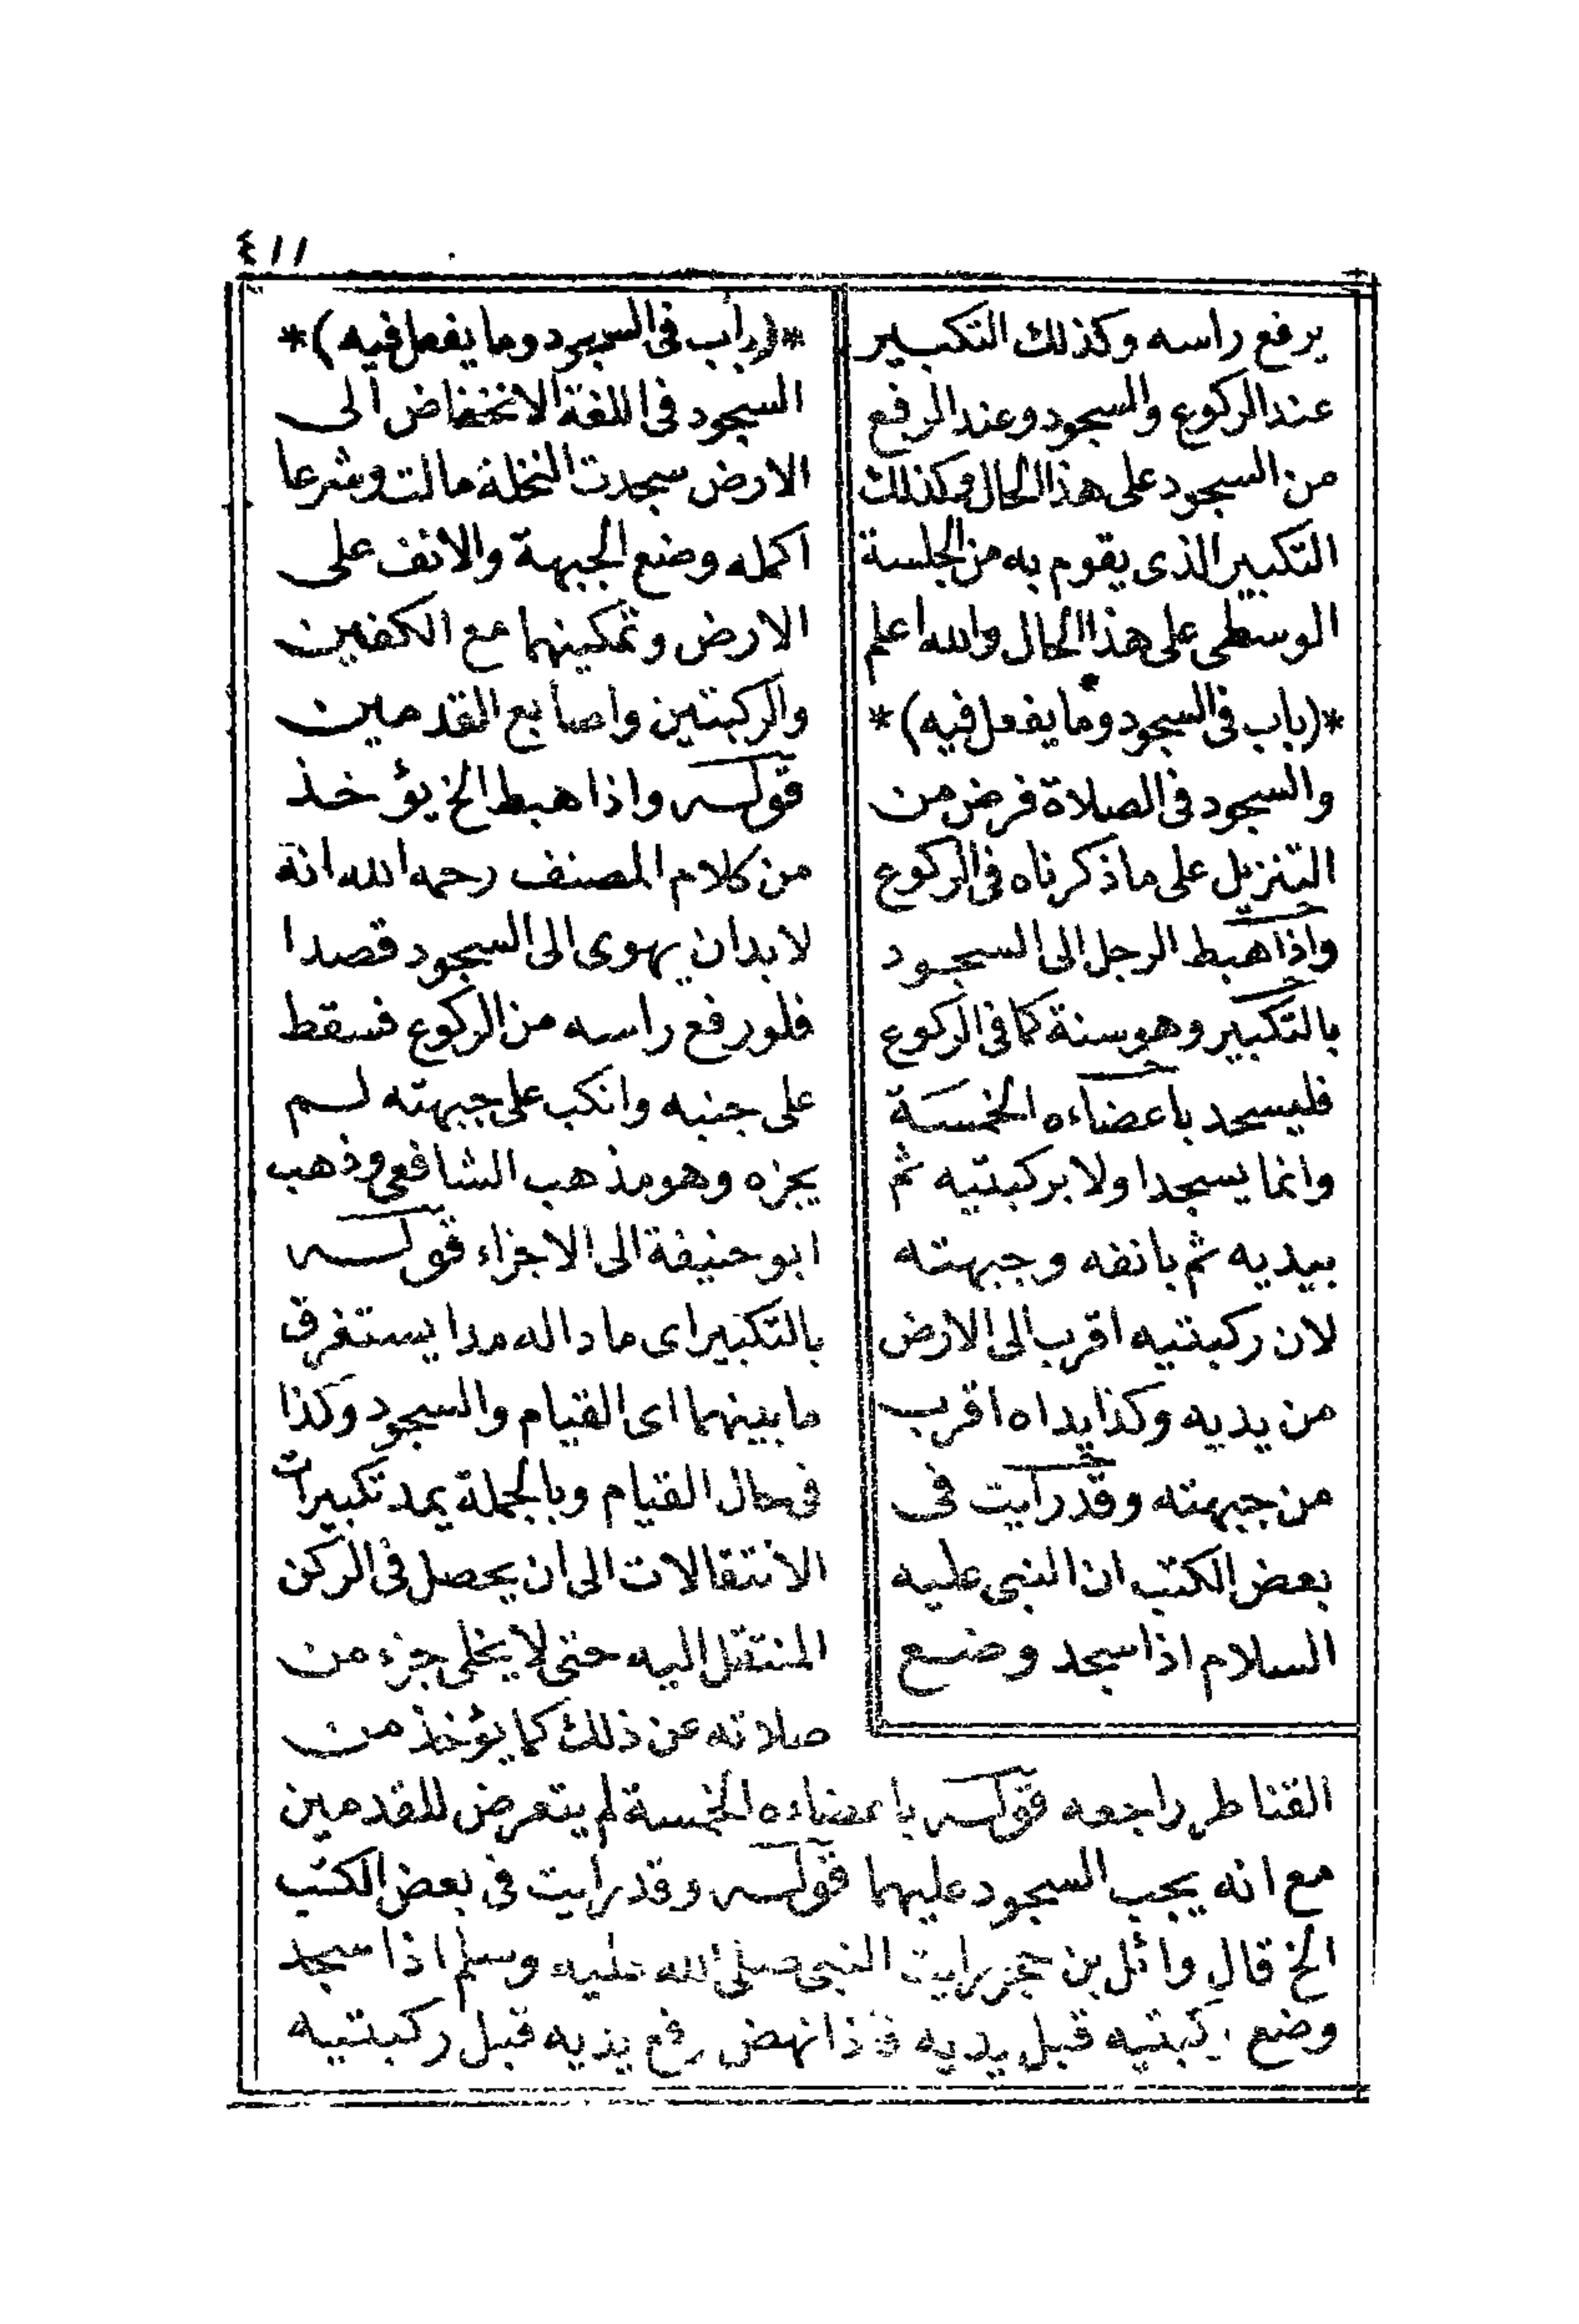 ٤١١
يرفع راسه وكذلك التكبير
عند الركوع والسجود وعند الرفع
من السجود على هذا الحال وكذلك
التكبير الذى يقوم به من الجلسة
الوسطى على هذا الحال والله اعلم
*(باب فى السجود وما يفعل فيه)*
والسجود فى الصلاة فرض من
التنزيل على ما ذكرناه فى الركوع
واذا هبط الرجل الى السجود
بالتكبير وهو سنة كما فى الركوع
فليسجد باعضاءه الخمسة
وانما يسجد اولا بركبتيه ثم
بيديه ثم بانفه وجبهته
لان ركبتيه اقرب الى الارض
من يديه وكذا يداه اقرب
من جبهته وقد رايت فى
بعض الكتب ان النبى عليه
السلام اذا سجد وضع
*(باب فى السجود وما يفعل فيه)*
السجود فى اللغة الانخفاض الى
الارض سجدت النخلة مالت وشرعا
اكمله وضع الجبهة والانف على
الارض وتمكينهما مع الكفين
والركبتين واصابع القدمين
قوله واذا هبط الخ يؤخذ
من كلام المصنف رحمه الله انه
لابد ان يهوى الى السجود قصدا
فلو رفع راسه من الركوع فسقط
على جنبه وانكب على جبهته لم
يجزه وهو مذهب الشافعى وذهب
ابو حنيفة الى الاجزاء قوله
بالتكبير اى مادا له مدا يستغرق
ما بينهما اى القيام والسجود وكذا
فى حال القيام وبالجملة يمد تكبيرات
الانتقالات الى ان يحصل فى الركن
المنتقل اليه حتى لا يخلى جزء من
صلاته عن ذلك كما يؤخذ من
القناطر راجعه قوله باعضاءه الخمسة لم يتعرض للقدمين
مع انه يجب السجود عليهما قوله وقد رايت فى بعض الكتب
الخ قال وائل بن حجر رايت النبى صلى الله عليه وسلم اذا سجد
وضع ركبتيه قبل يديه فاذا نهض رفع يديه قبل ركبتيه